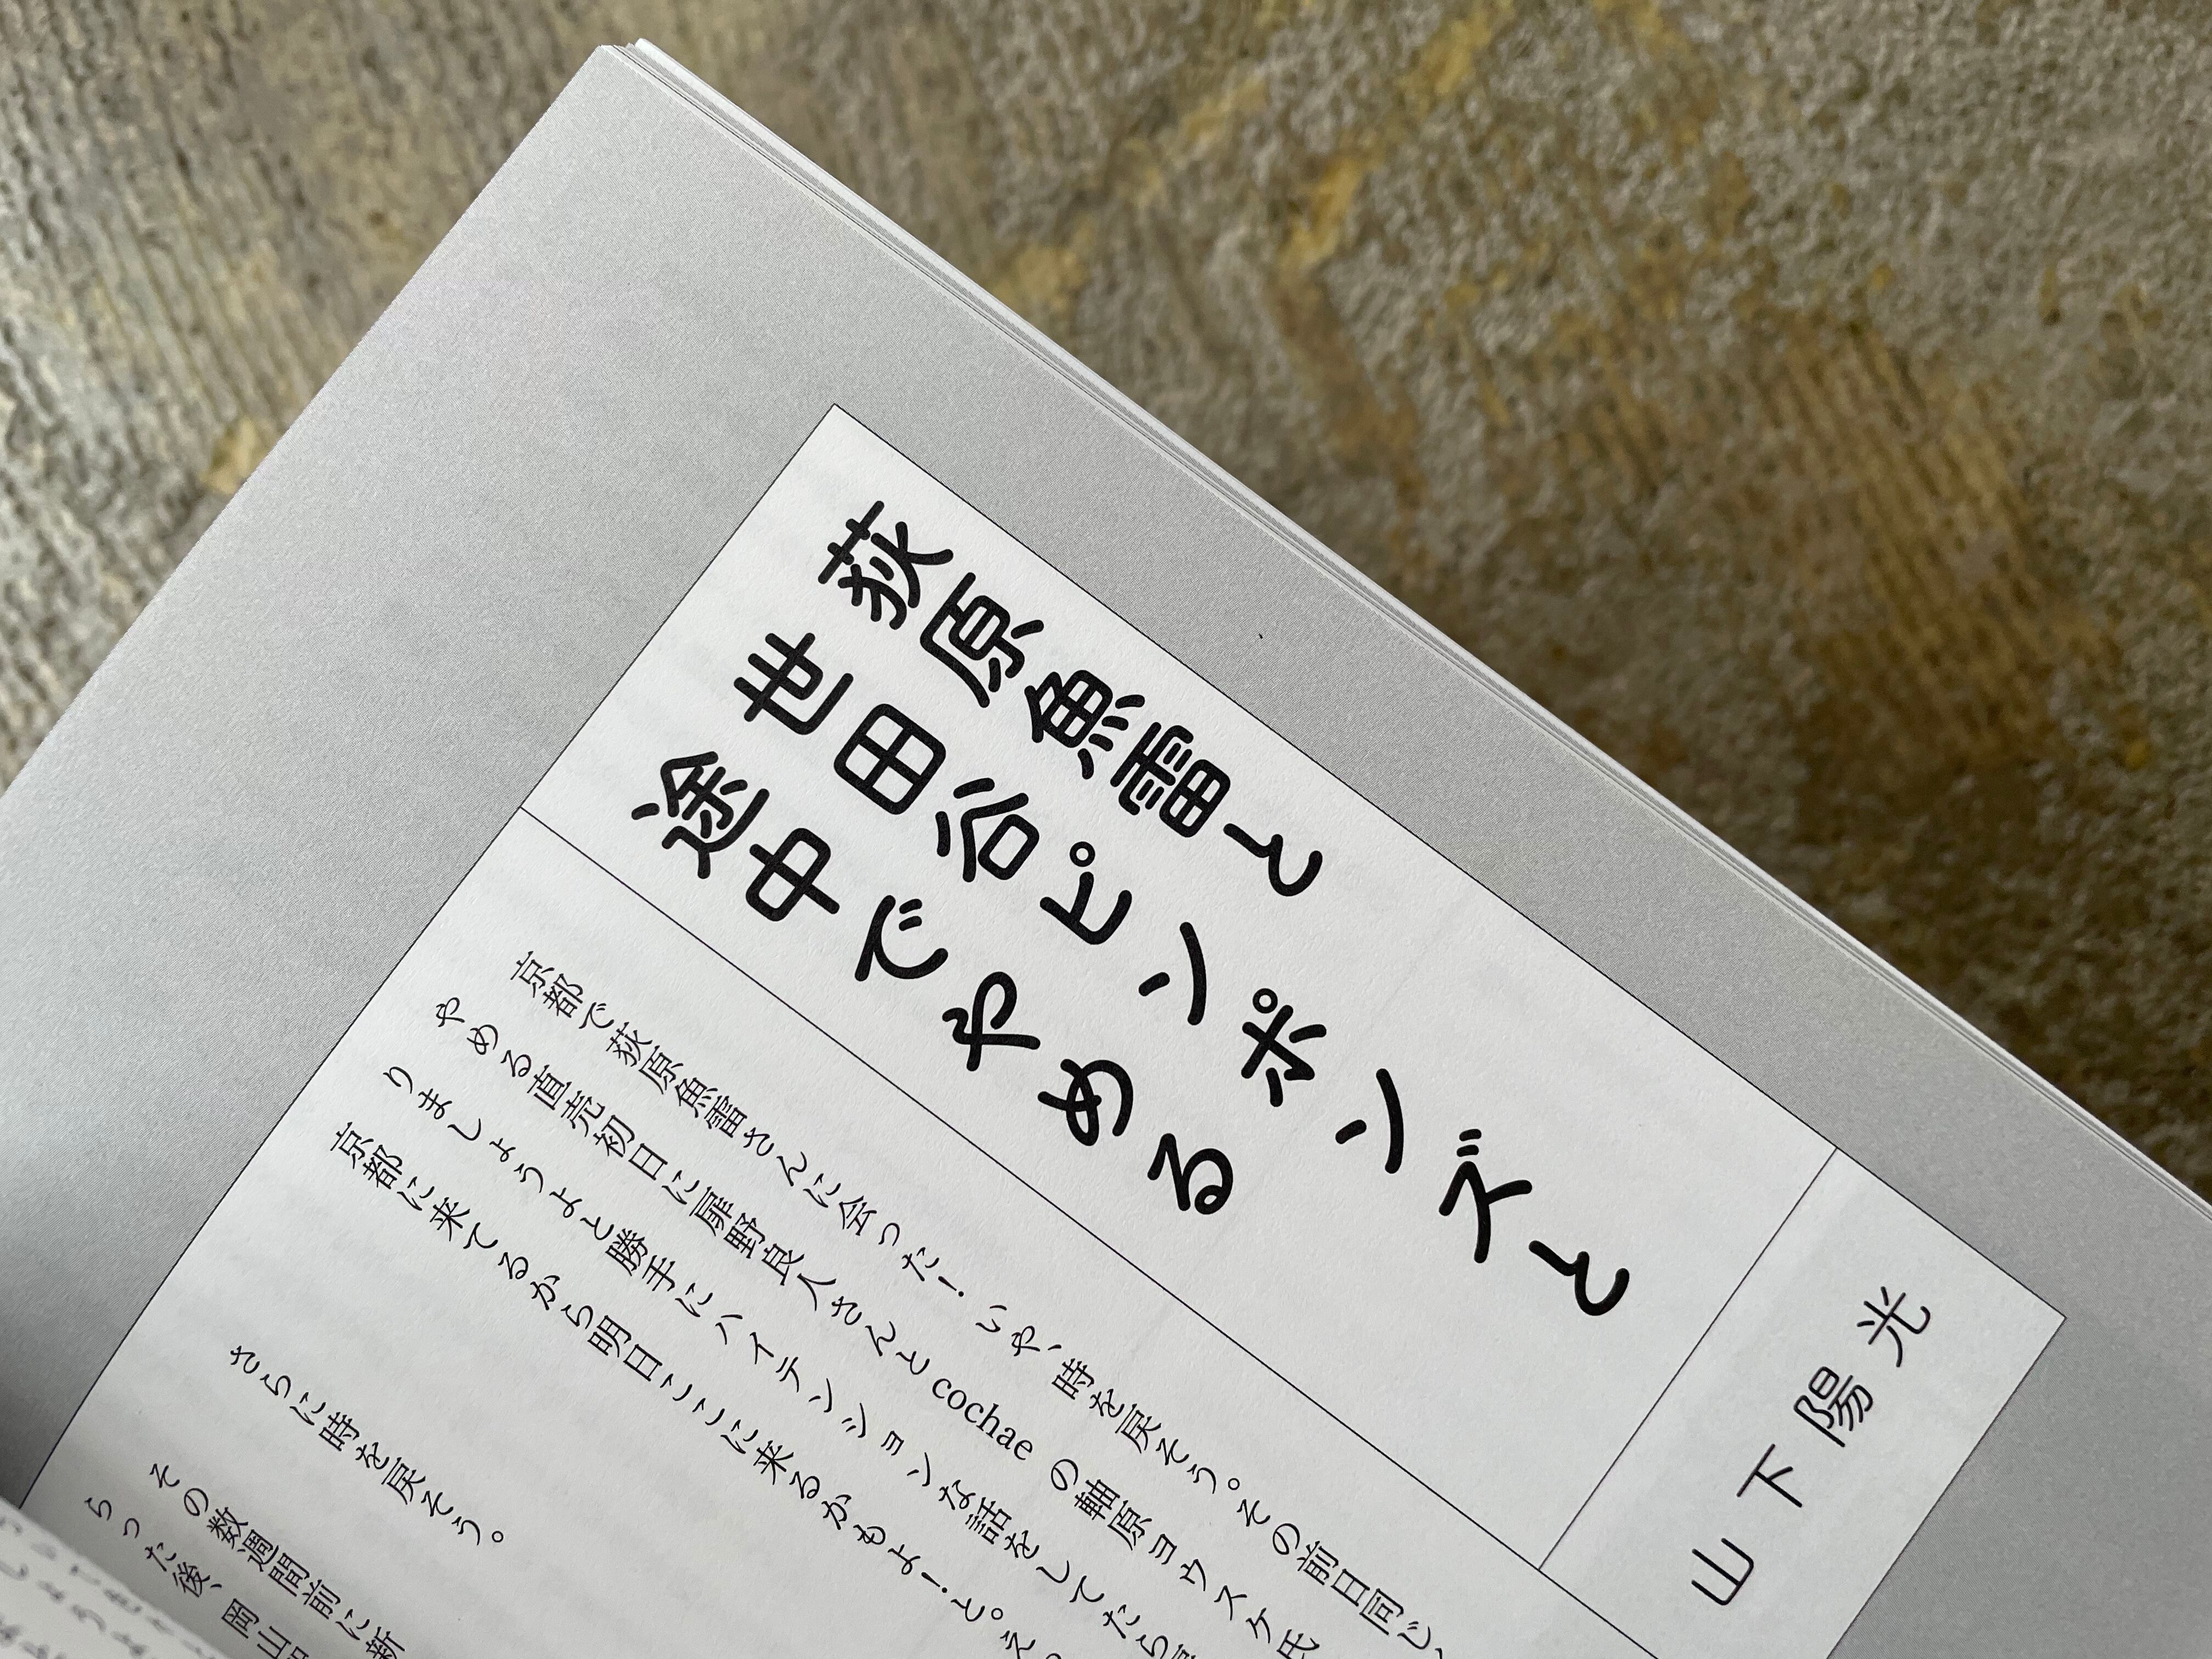 荻原魚雷と
世田谷ピンポンズと
途中でやめる
山下陽光
京都で荻原魚雷さんに会った！ いや、時を戻そう。その前日同じ、
やめる直売初日に扉野良人さんと cochae の軸原ヨウスケ氏
りましょうよと勝手にハイテンションな話をしてたら
京都に来てるから明日ここに来るかもよ！と。そ
さらに時を戻そう。
その数週間前に新
らった後、岡山